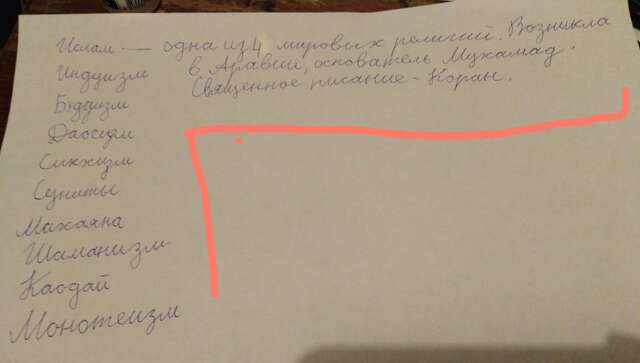 Ислам — одна из 4 мировых религий. Возникла
в Аравии, основатель Мухамад.
Священное писание - Коран.
Индуизм
Буддизм
Даосизм
Сикхизм
Суниты
Махаяна
Шаманизм
Каодай
Монотеизм